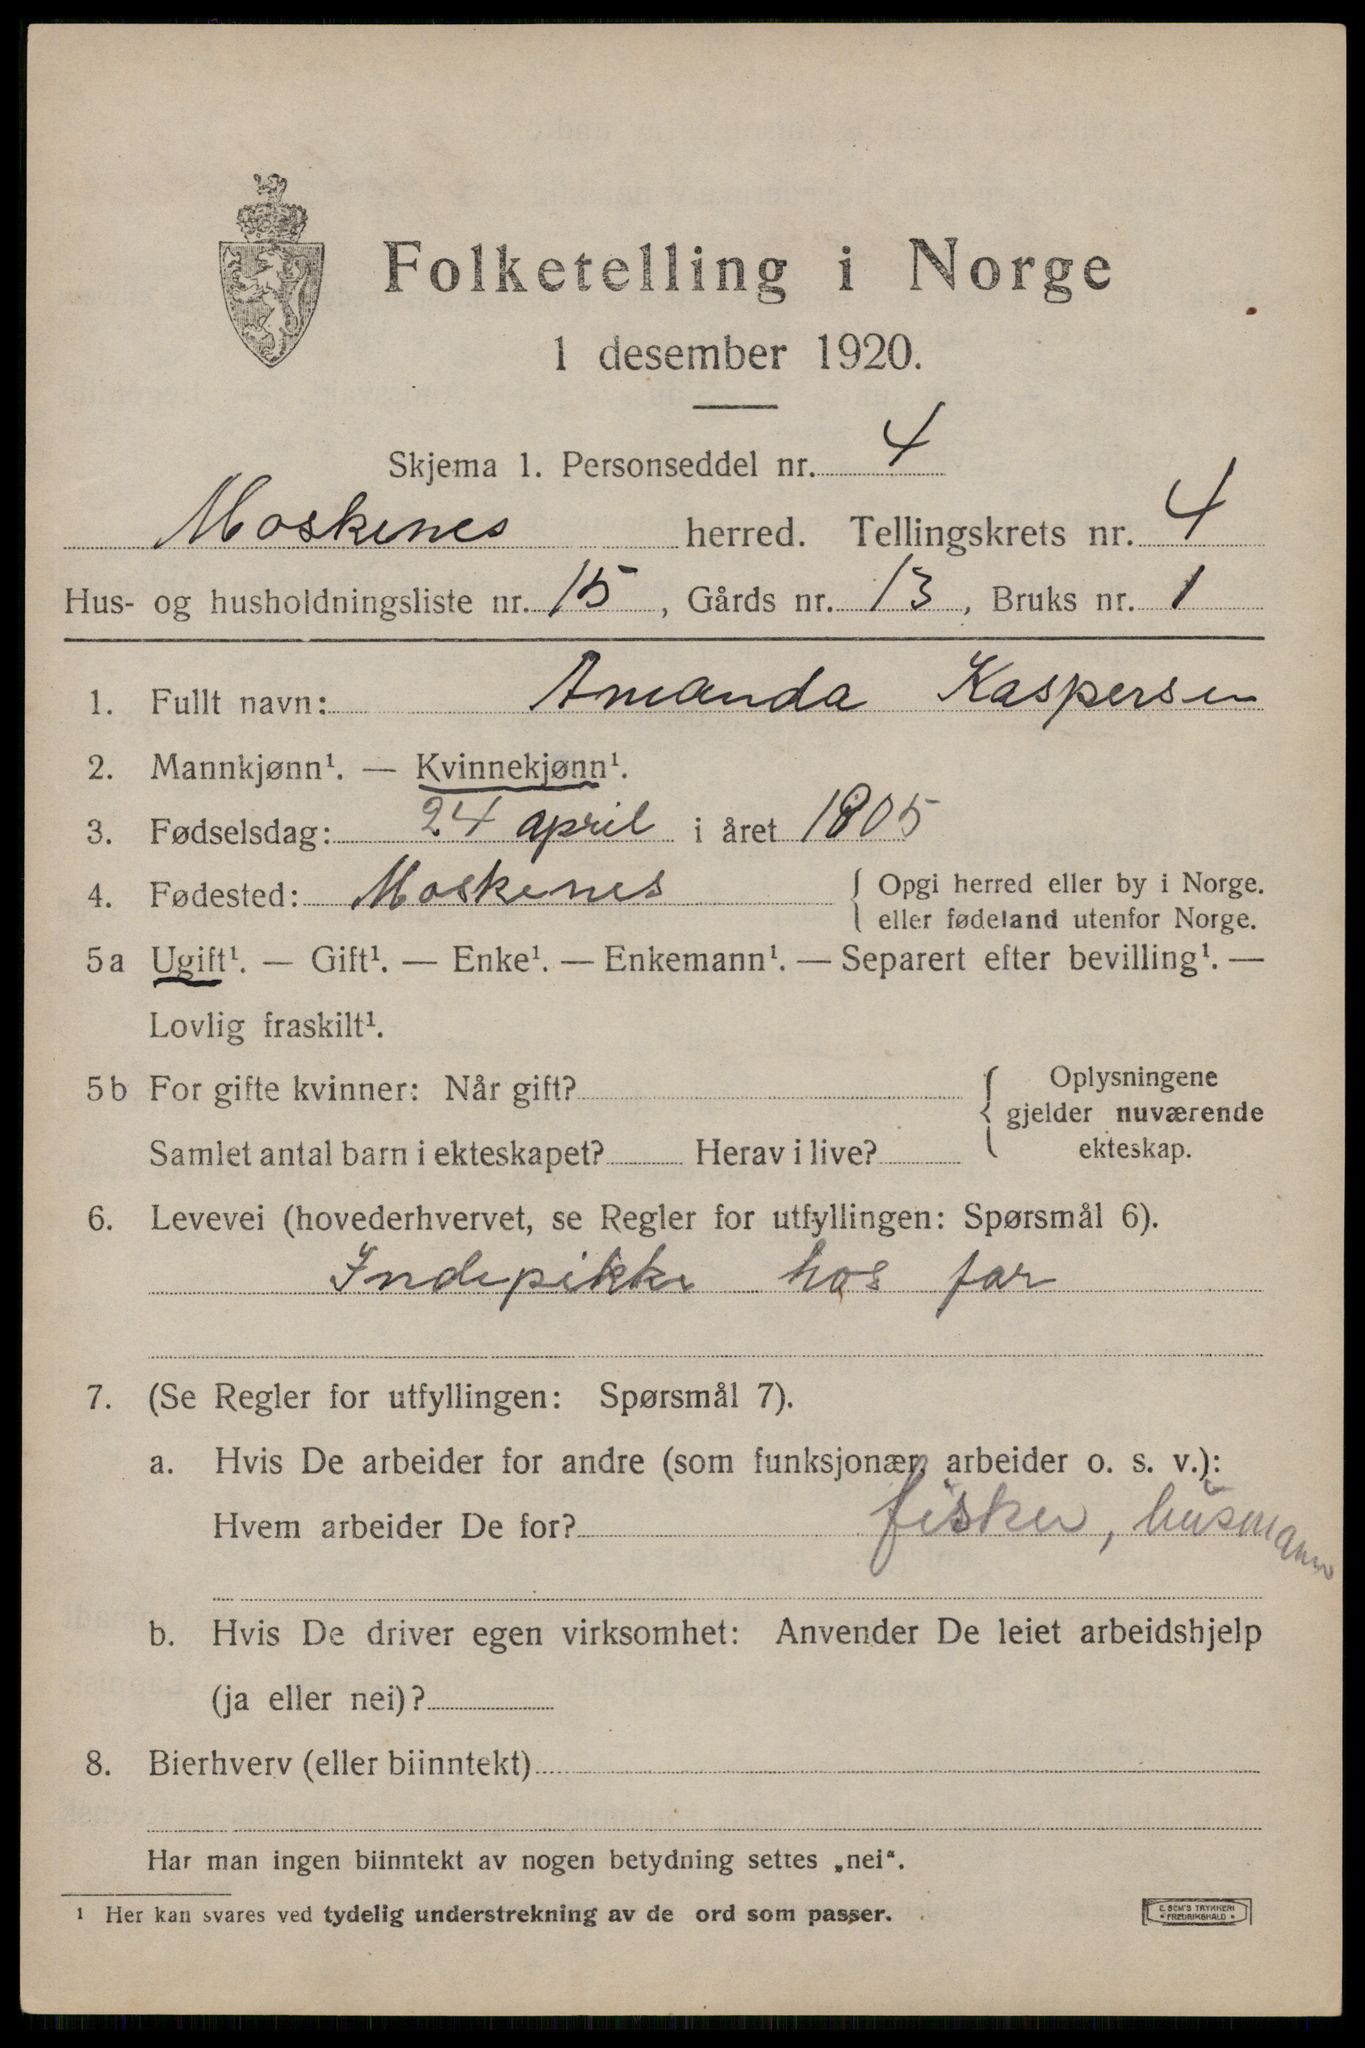 Folketelling i Norge
1 desember 1920.
Skjema 1. Personseddel nr. 4
Moskenes herred. Tellingskrets nr. 4
Hus- og husholdningsliste nr. 15, Gårds nr. 13, Bruks nr. 1
1. Fullt navn: Amanda Kaspersen
2. Mannkjønn¹. — Kvinnekjønn¹.
3. Fødselsdag: 24 april i året 1805
4. Fødested: Moskenes { Opgi herred eller by i Norge.
eller fødeland utenfor Norge.
5a Ugift¹. — Gift¹. — Enke¹. — Enkemann¹. — Separert efter bevilling¹. —
Lovlig fraskilt¹.
5b For gifte kvinner: Når gift? { Oplysningene
gjelder nuværende
Samlet antal barn i ekteskapet? Herav i live? ekteskap.
6. Levevei (hovederhvervet, se Regler for utfyllingen: Spørsmål 6).
Indepikke hos far
7. (Se Regler for utfyllingen: Spørsmål 7).
a. Hvis De arbeider for andre (som funksjonær, arbeider o. s. v.):
Hvem arbeider De for? fisker, husmann
b. Hvis De driver egen virksomhet: Anvender De leiet arbeidshjelp
(ja eller nei)?
8. Bierhverv (eller biinntekt)
Har man ingen biinntekt av nogen betydning settes „nei“.
¹ Her kan svares ved tydelig understrekning av de ord som passer.
E. SEM'S TRYKKERI
* FREDRIKSHALD *